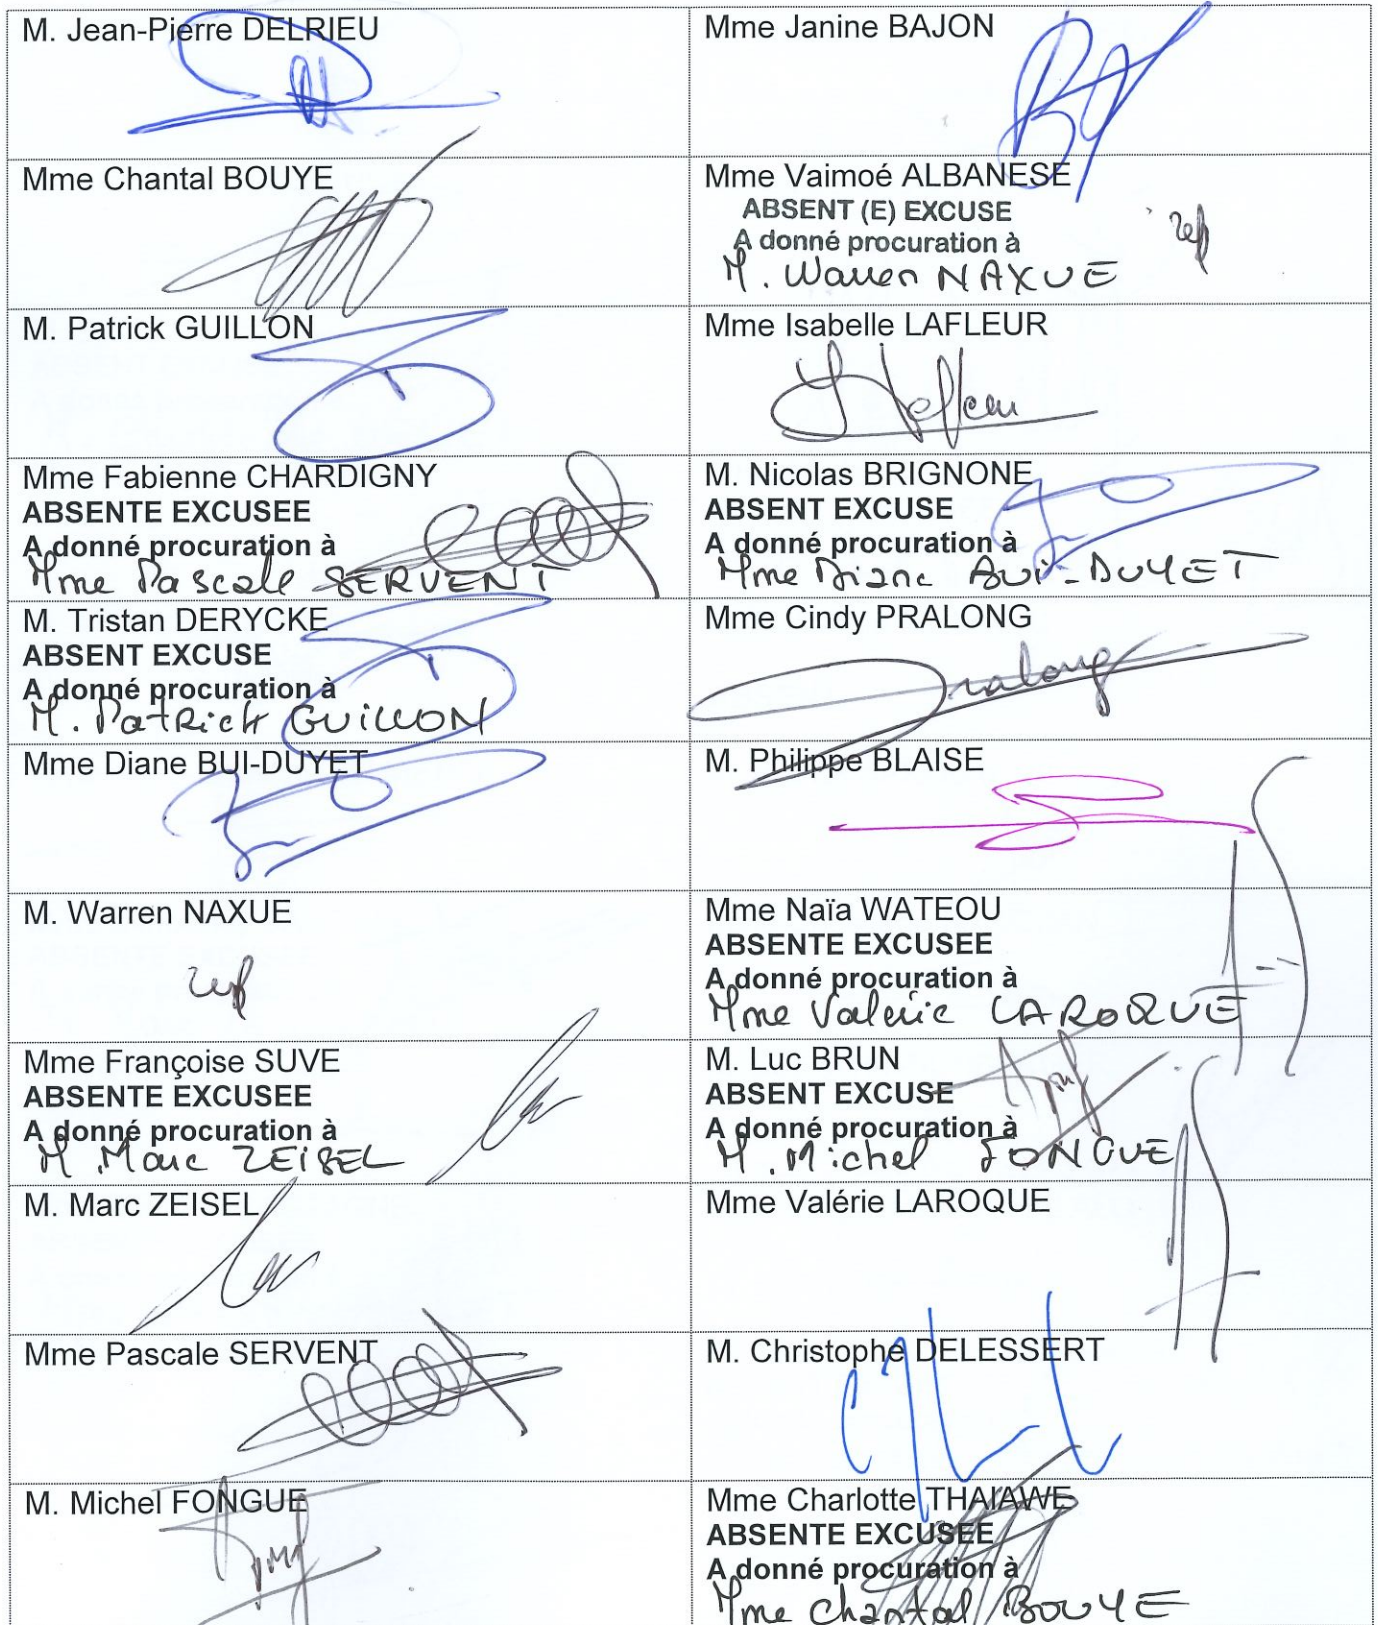 M. Jean-Pierre DELRIEU
Mme Janine BAJON
Mme Chantal BOUYE
Mme Vaimoé ALBANESE
ABSENT (E) EXCUSE
A donné procuration à
M. Warren NAXUE
M. Patrick GUILLON
Mme Isabelle LAFLEUR
Mme Fabienne CHARDIGNY
ABSENTE EXCUSEE
A donné procuration à
Mme Pascale SERVENT
M. Nicolas BRIGNONE
ABSENT EXCUSE
A donné procuration à
Mme Diane BUI-DUYET
M. Tristan DERYCKE
ABSENT EXCUSE
A donné procuration à
M. Patrick GUILLON
Mme Cindy PRALONG
Pralong
Mme Diane BUI-DUYET
M. Philippe BLAISE
M. Warren NAXUE
Mme Naïa WATEOU
ABSENTE EXCUSEE
A donné procuration à
Mme Valérie LAROQUE
Mme Françoise SUVE
ABSENTE EXCUSEE
A donné procuration à
M. Marc ZEISEL
M. Luc BRUN
ABSENT EXCUSE
A donné procuration à
M. Michel FONGUE
M. Marc ZEISEL
Mme Valérie LAROQUE
Mme Pascale SERVENT
M. Christophe DELESSERT
M. Michel FONGUE
Mme Charlotte THAIAWE
ABSENTE EXCUSEE
A donné procuration à
Mme Chantal BOUYE